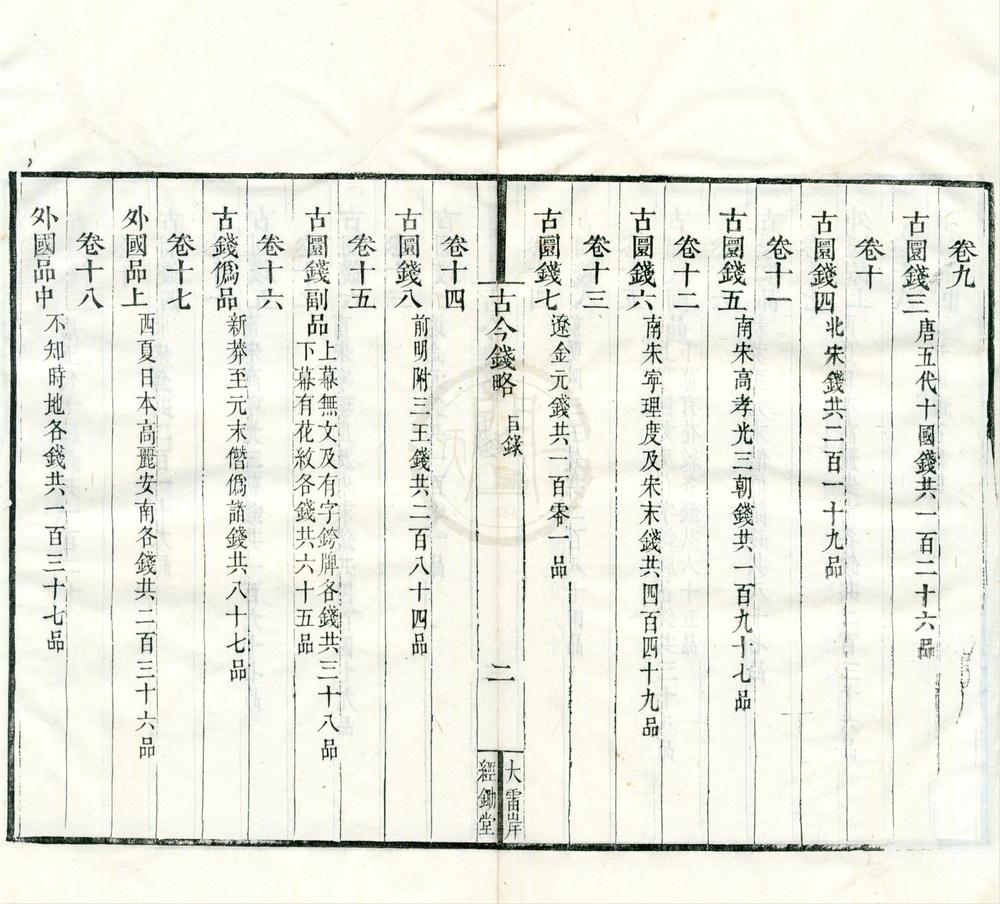 卷九
古圜錢三 唐五代十國錢共一百二十六品
卷十
古圜錢四 北宋錢共二百一十九品
卷十一
古圜錢五 南宋高孝光三朝錢共一百九十七品
卷十二
古圜錢六 南宋寜理度及宋末錢共四百四十九品
卷十三
古圜錢七 遼金元錢共一百零一品
古今錢略 目錄 二
大雷岸
經鋤堂
卷十四
古圜錢八 前明附三王錢共二百八十四品
卷十五
古圜錢副品 上幕無文及有字銙牌各錢共三十八品
下幕有花紋各錢共六十五品
卷十六
古錢僞品 新莽至元末僭僞諸錢共八十七品
卷十七
外國品上 西夏日本高麗安南各錢共二百三十六品
卷十八
外國品中 不知時地各錢共一百三十七品